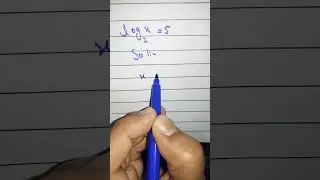 log₂ x = 5
Soln
x